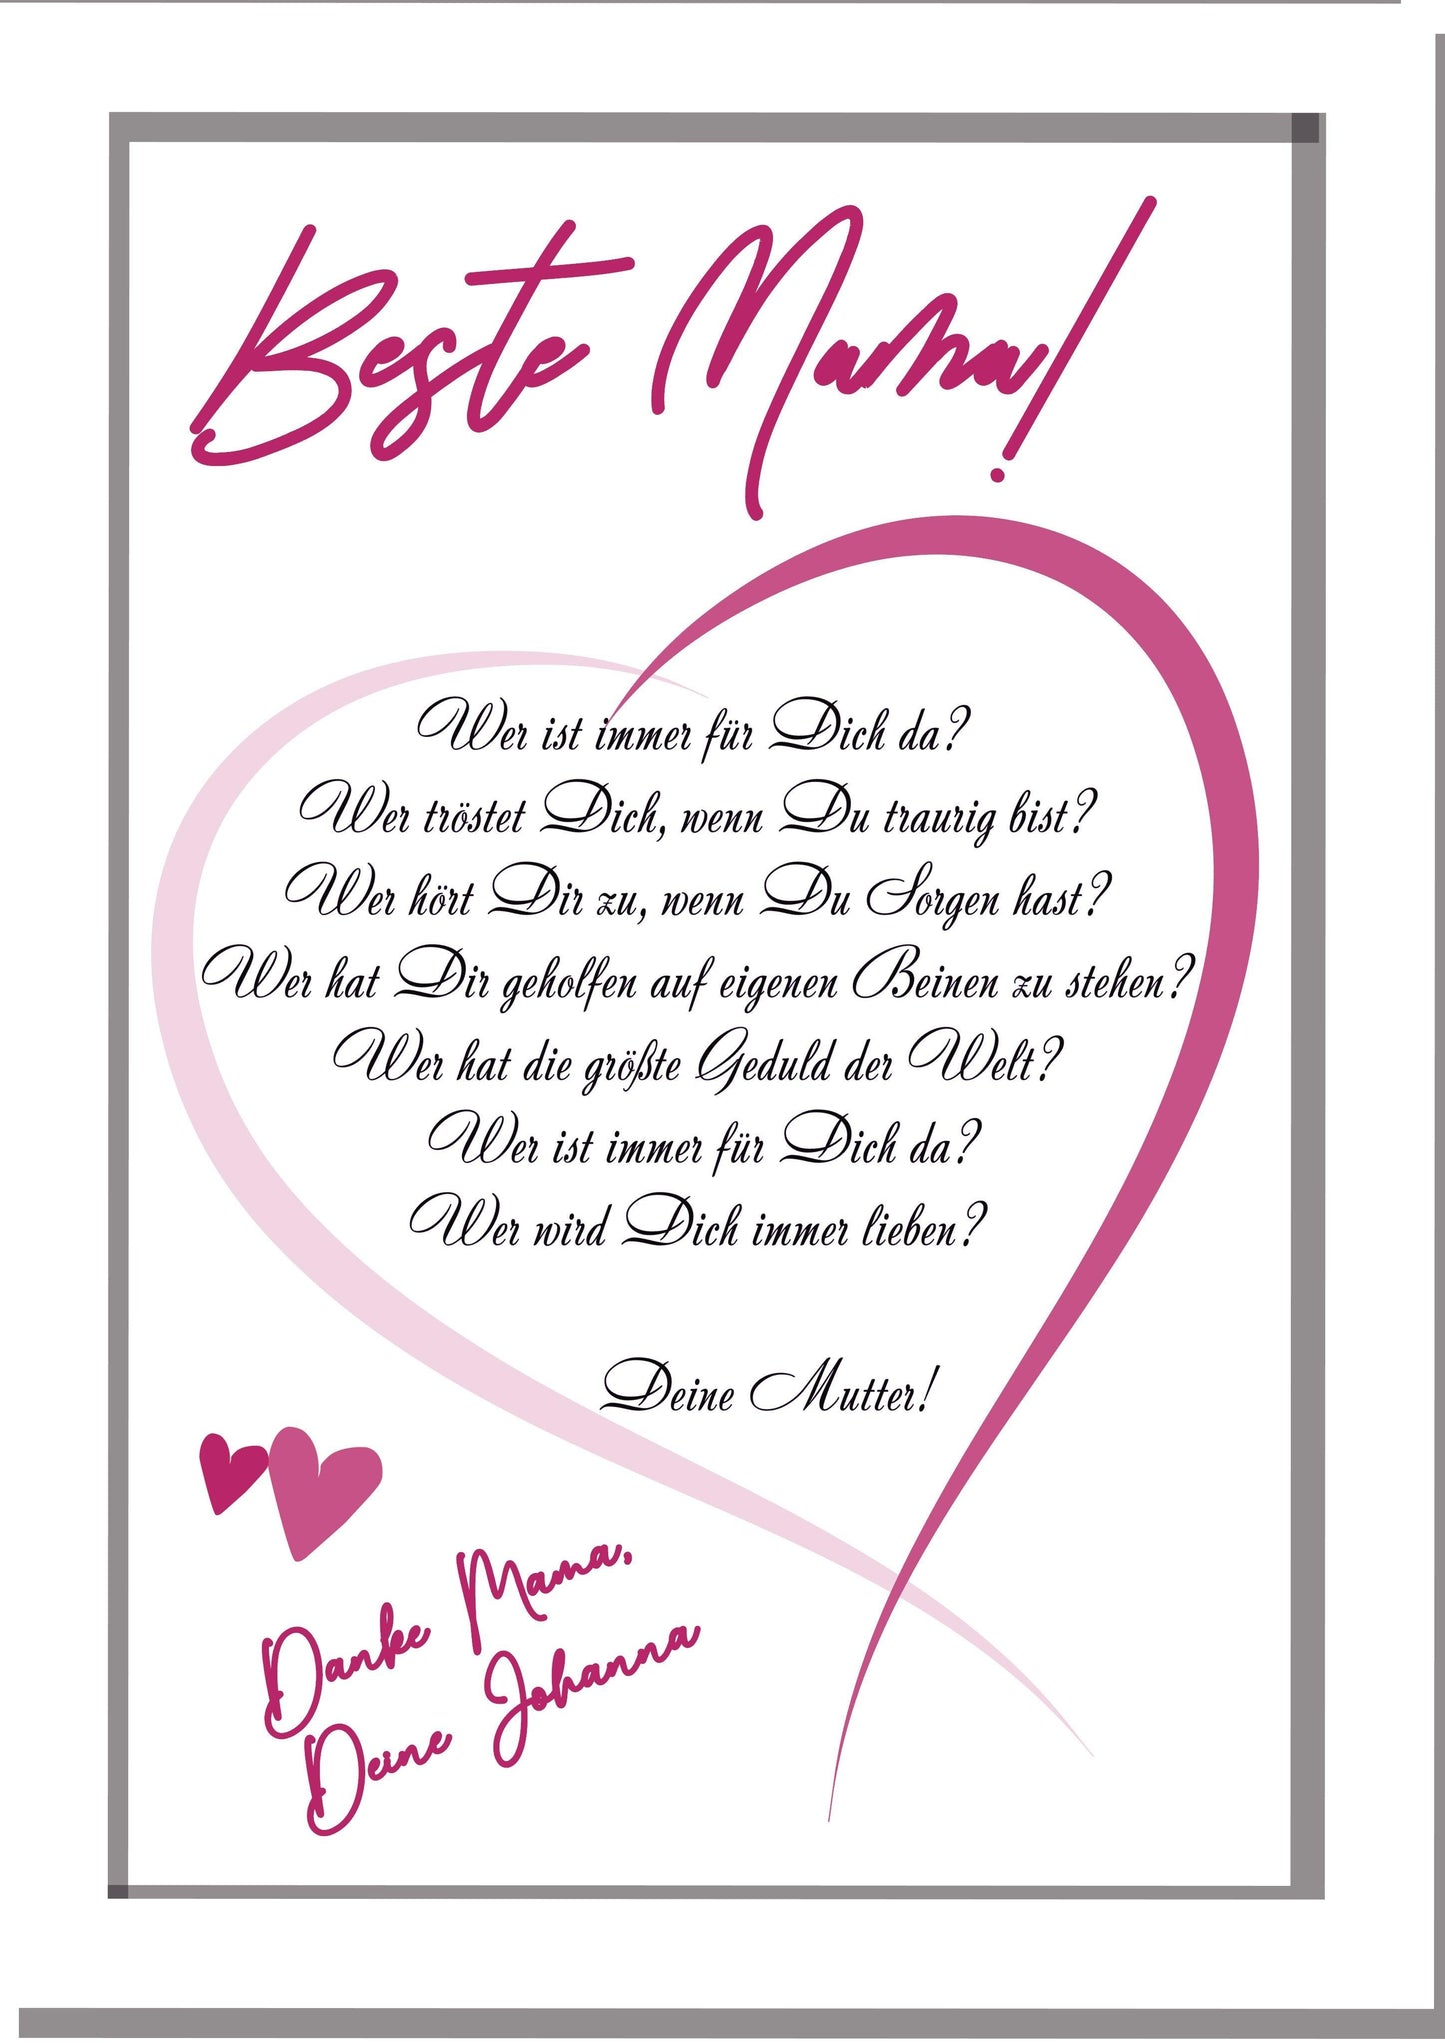 Beste Mama!
Wer ist immer für Dich da?
Wer tröstet Dich, wenn Du traurig bist?
Wer hört Dir zu, wenn Du Sorgen hast?
Wer hat Dir geholfen auf eigenen Beinen zu stehen?
Wer hat die größte Geduld der Welt?
Wer ist immer für Dich da?
Wer wird Dich immer lieben?
Deine Mutter!
Danke Mama,
Deine Johanna